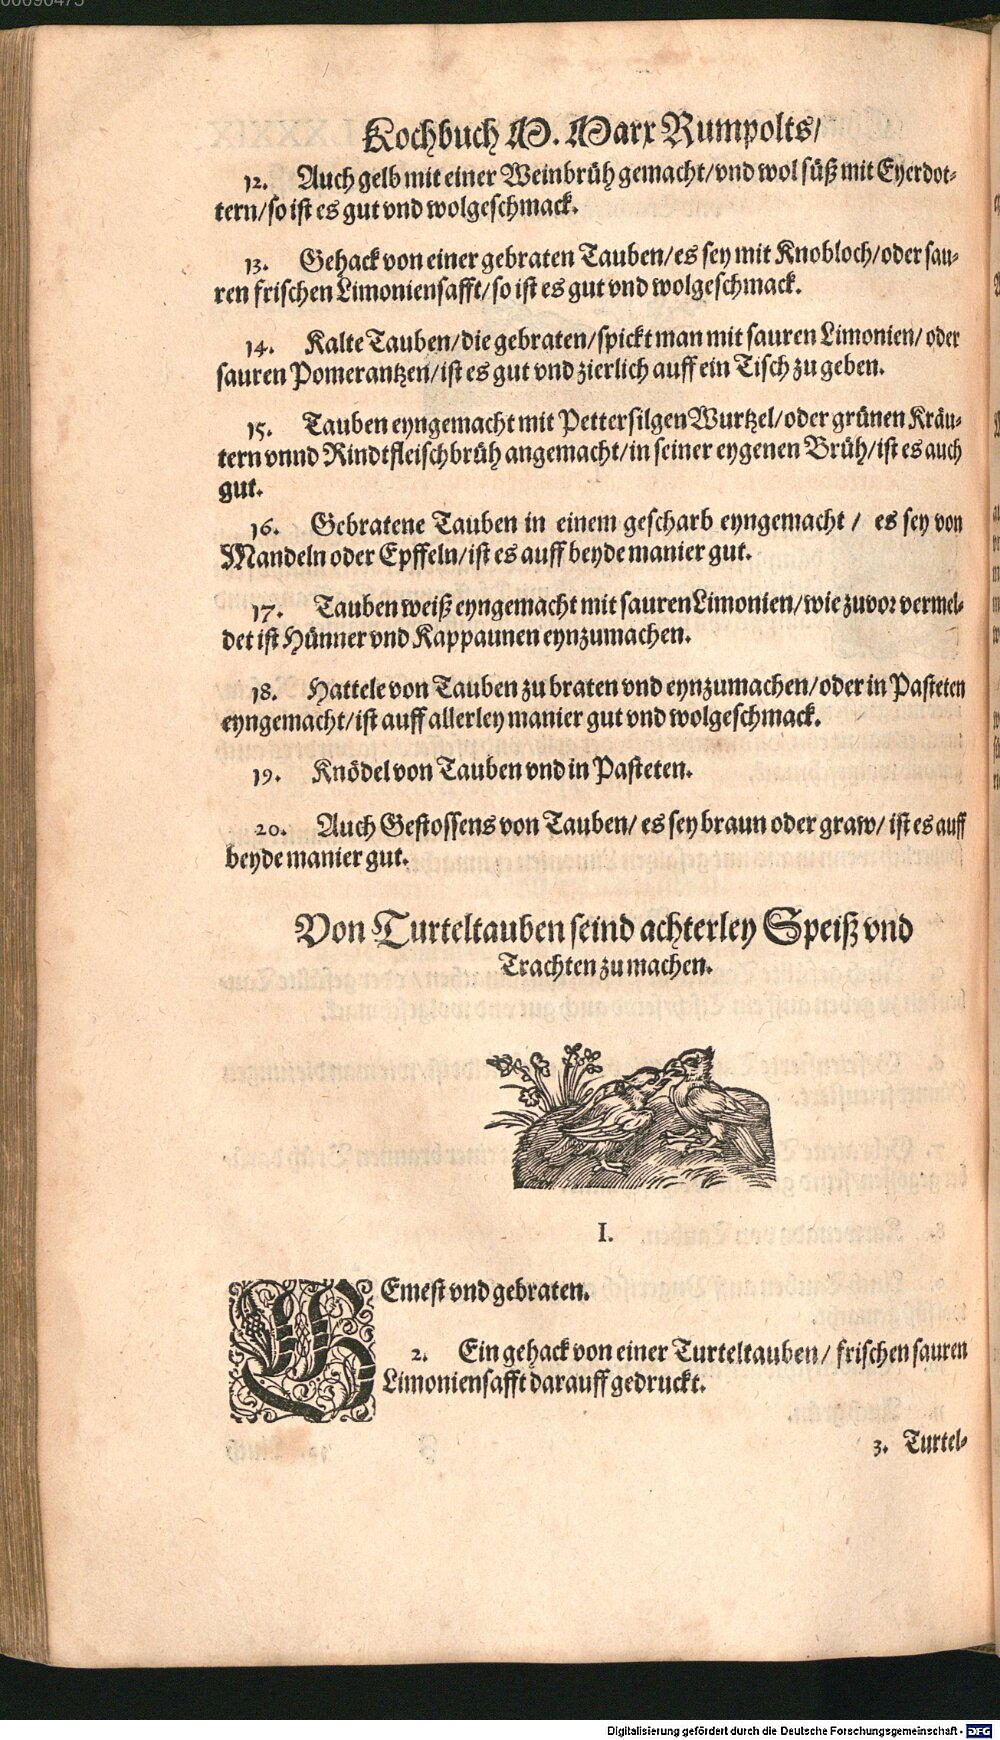 Kochbuch M. Marx Rumpolts/
12. Auch gelb mit einer Weinbrüh gemacht/vnd wol süß mit Eyerdot-
tern/so ist es gut vnd wolgeschmack.
13. Gehack von einer gebraten Tauben/es sey mit Knobloch/oder sau-
ren frischen Limoniensafft/so ist es gut vnd wolgeschmack.
14. Kalte Tauben/die gebraten/spickt man mit sauren Limonien/oder
sauren Pomerantzen/ist es gut vnd zierlich auff ein Tisch zu geben.
15. Tauben eyngemacht mit Pettersilgen Wurtzel/oder grünen Kräu-
tern vnnd Rindtfleischbrüh angemacht/in seiner eygenen Brüh/ist es auch
gut.
16. Gebratene Tauben in einem gescharb eyngemacht/ es sey von
Mandeln oder Epffeln/ist es auff beyde manier gut.
17. Tauben weiß eyngemacht mit sauren Limonien/wie zuvor vermel-
det ist Hünner vnd Kappaunen eynzumachen.
18. Hattele von Tauben zu braten vnd eynzumachen/oder in Pasteten
eyngemacht/ist auff allerley manier gut vnd wolgeschmack.
19. Knödel von Tauben vnd in Pasteten.
20. Auch Gestossens von Tauben/ es sey braun oder graw/ ist es auff
beyde manier gut.
Von Turteltauben seind achterley Speiß vnd
Trachten zu machen.
I.
GEmest vnd gebraten.
2. Ein gehack von einer Turteltauben/ frischen sauren
Limoniensafft darauff gedruckt.
3. Turtel-
Digitalisierung gefördert durch die Deutsche Forschungsgemeinschaft - DFG